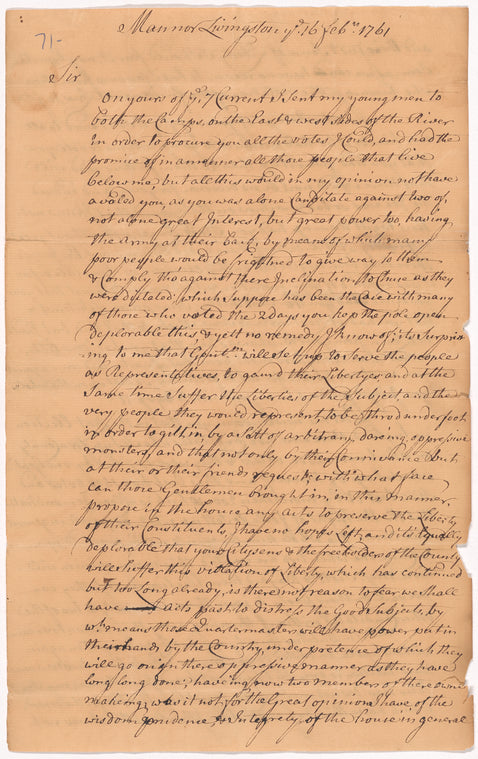 71-
Mannor Livingston ye. 16 febry. 1761
Sir
On yours of ye. 7 Current I Sent my young men to
both the Camps, on the East & west Sides of the River
in order to procure you all the Votes I Could, and had the
promise of in a manner all those people that live
below me, but all this would in my opinion not have
availed you, as you was alone Candidate against two of,
not alone great Interest, but great power too, having
the Army at their back, by means of which many
poor people would be frightned to give way to them
& Comply tho' against there Inclination, to Chuse as they
were dictated, which I suppose has been the Case with many
of those who voted the 2 days you kep the pole open
Deplorable this, & yett no remedy I know of; its Surpris
ing to me that Gentn. will Sett up to Serve the people
as Representatives, to gaurd their Libertyes and at the
Same time Suffer the Liberties of the Subject and the
very people they would represent, to be throd underfoot
in order to gitt in by a Sett of arbitrary, daring, oppresive
monsters, and that not only by their Connivance but
at their or their friends request; with what face
can those Gentlemen brought in, in this manner,
propose in the house any acts to preserve the Liberty
of their Constituents, I have no hopes left, and it's Equally
deplorable that your Citysens & the freeholders of the County
will Suffer this violation of Liberty, which has continued
but too Long already, is there not reason to fear we shall
have acts past to distress the Good Subjects, by
wh. means those Quartermasters will have power put in
their hands by the Country, under pretence of which they
will go on in there oppressive manner as they have
long long done; having now two members of there own
making; was it not for the Great opinion I have of the
wisdom prudence, & Integrety, of the house in general